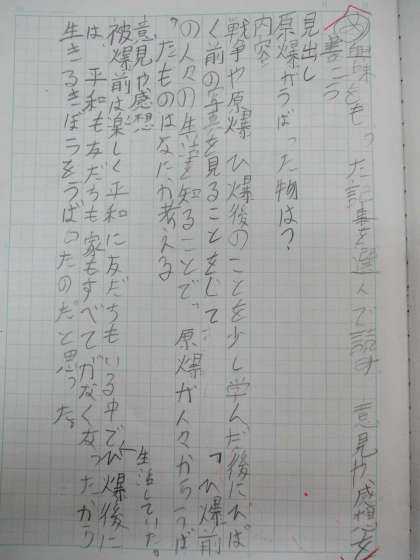 め 興味をもった記事を選んで読み 意見や感想を
書こう
見出し
原爆がうばった物は?
内容
戦争や原爆 ひ爆後のことを少し学んだ後にひば
く前の写真を見ることをして 「ひ爆前
の人々の生活を知ることで、原爆が人々からうば
ったものはなにか考える
意見や感想
被爆前は楽しく平和に友だちもいる中で ひ爆後に
生活していた。
は、平和も友だちも家もすべてがなくなったから
生きるきぼうをうばったのだと思った。